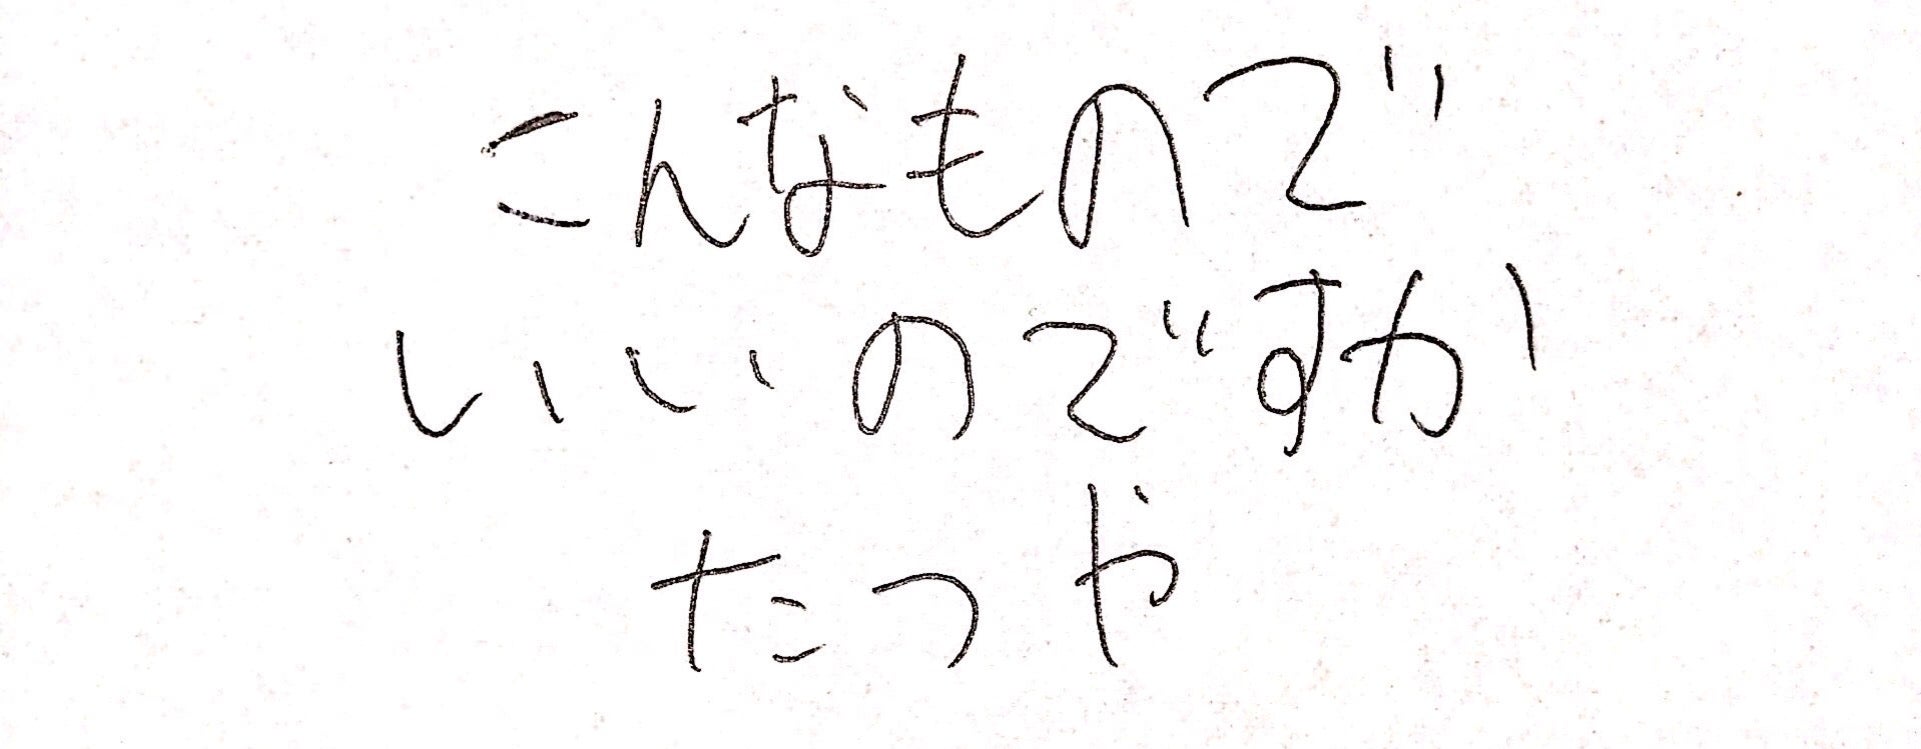 こんなもので
いいのですか
たつや